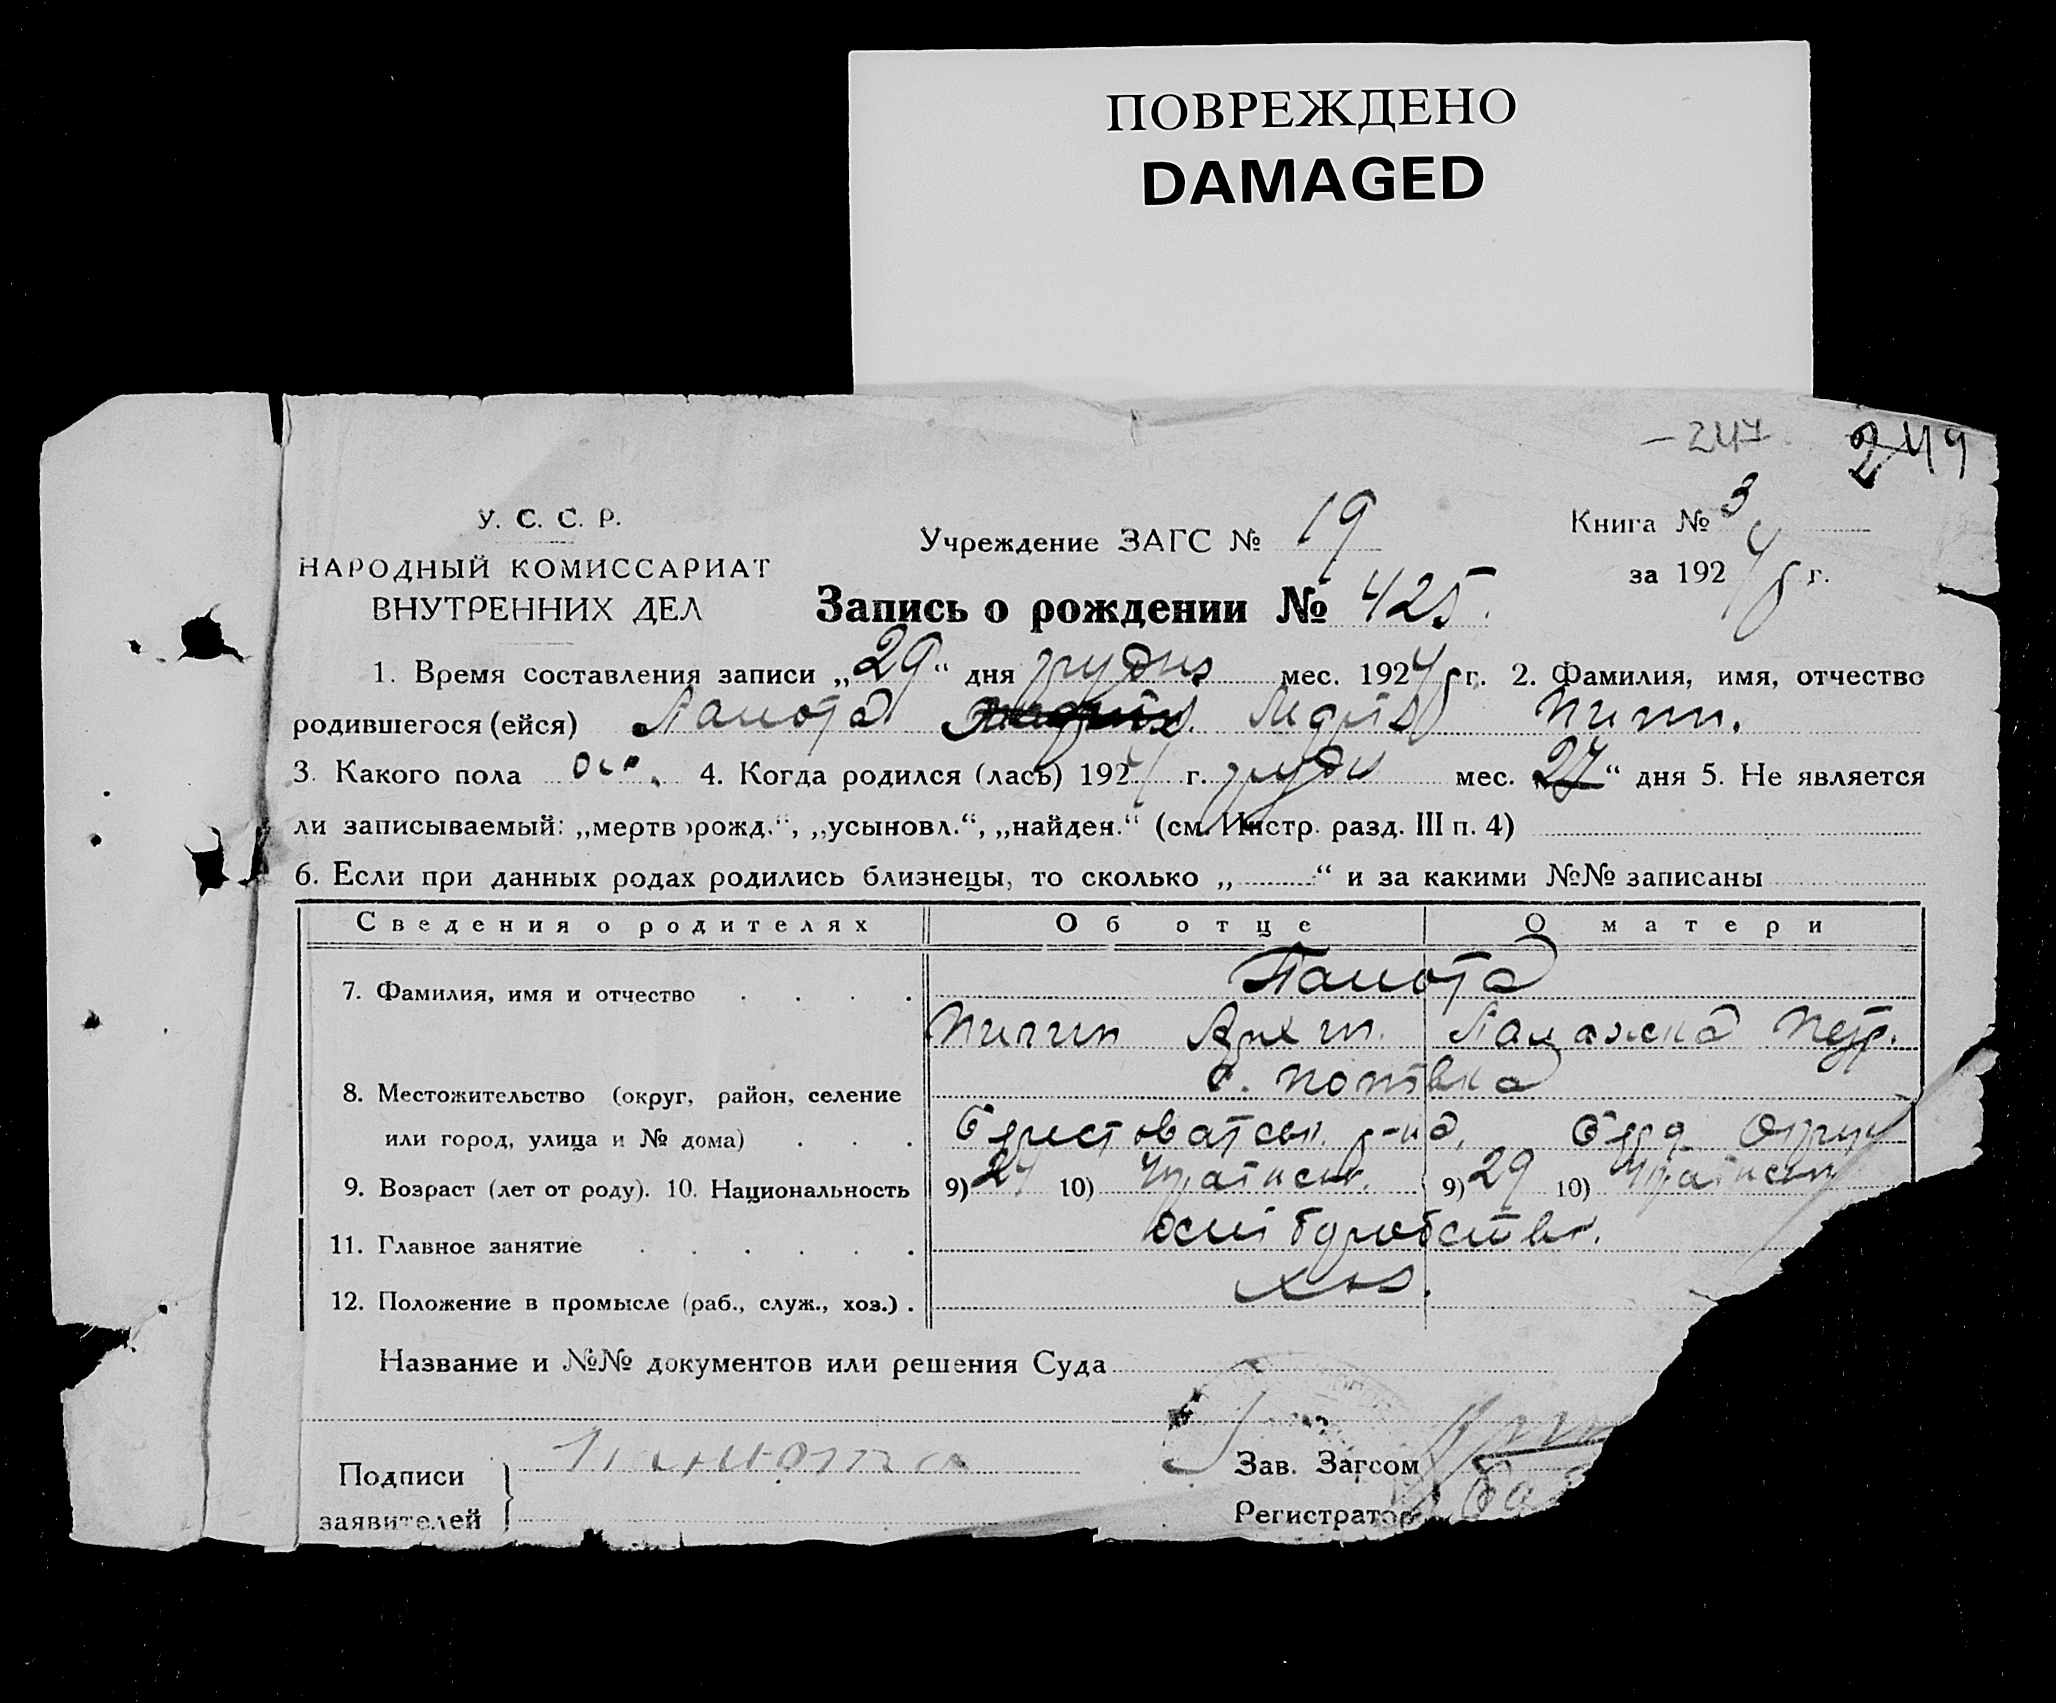 ПОВРЕЖДЕНО
DAMAGED
– 247. 249
У. С. С. Р.
НАРОДНЫЙ КОМИССАРИАТ
ВНУТРЕННИХ ДЕЛ
Учреждение ЗАГС № 19
Книга № 3
за 1924/5 г.
Запись о рождении № 425.
1. Время составления записи „29“ дня грудня мес. 1924/5 г. 2. Фамилия, имя, отчество
родившегося (ейся) Панюта Пилип.
3. Какого пола 4. Когда родился (лась) 1924 г. грудн мес. „27“ дня 5. Не является
ли записываемый: „мертворожд.“, „усыновл.“, „найден.“ (см. Инстр. разд. III п. 4)
6. Если при данных родах родились близнецы, то сколько „ “ и за какими №№ записаны
Сведения о родителях Об отце О матери
7. Фамилия, имя и отчество Панюта
Пилип Архип. Палажка Петр.
8. Местожительство (округ, район, селение с. Попівка
или город, улица и № дома) Берестоватськ. р-на, Берд. Округи
9. Возраст (лет от роду). 10. Национальность 9) 27 10) Українськ. 9) 29 10) Українськ
11. Главное занятие хліборобство.
12. Положение в промысле (раб., служ., хоз.) хоз.
Название и №№ документов или решения Суда
Подписи
заявителей
Панюта
Зав. Загсом
Регистратор